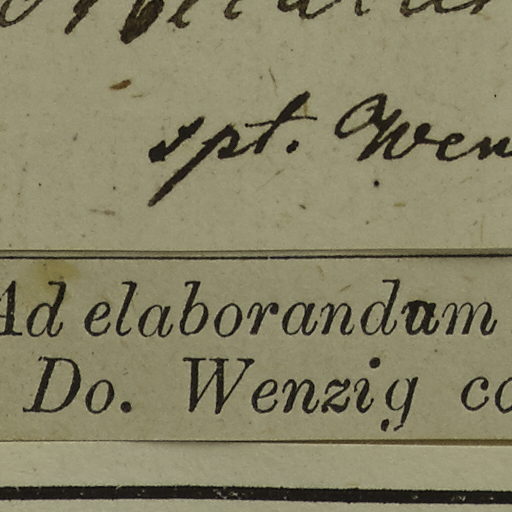 spt. Wen
Ad elaborandum
Do. Wenzig co